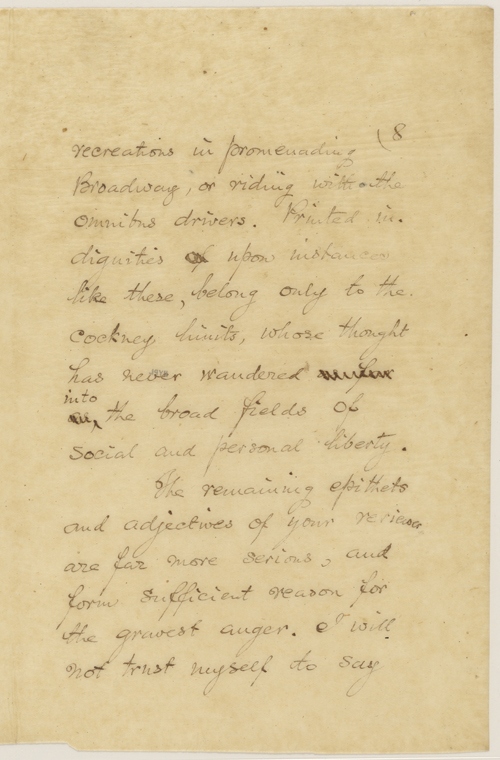 8
recreations in promenading
Broadway, or riding with the
omnibus drivers. Printed in-
dignities of upon instances
like these, belong only to the
cockney limits, whose thought
has never wandered
into
the broad fields of
social and personal liberty.
The remaining epithets
and adjectives of your reviewer
are far more serious, and
form sufficient reason for
the gravest anger. I will
not trust myself to say